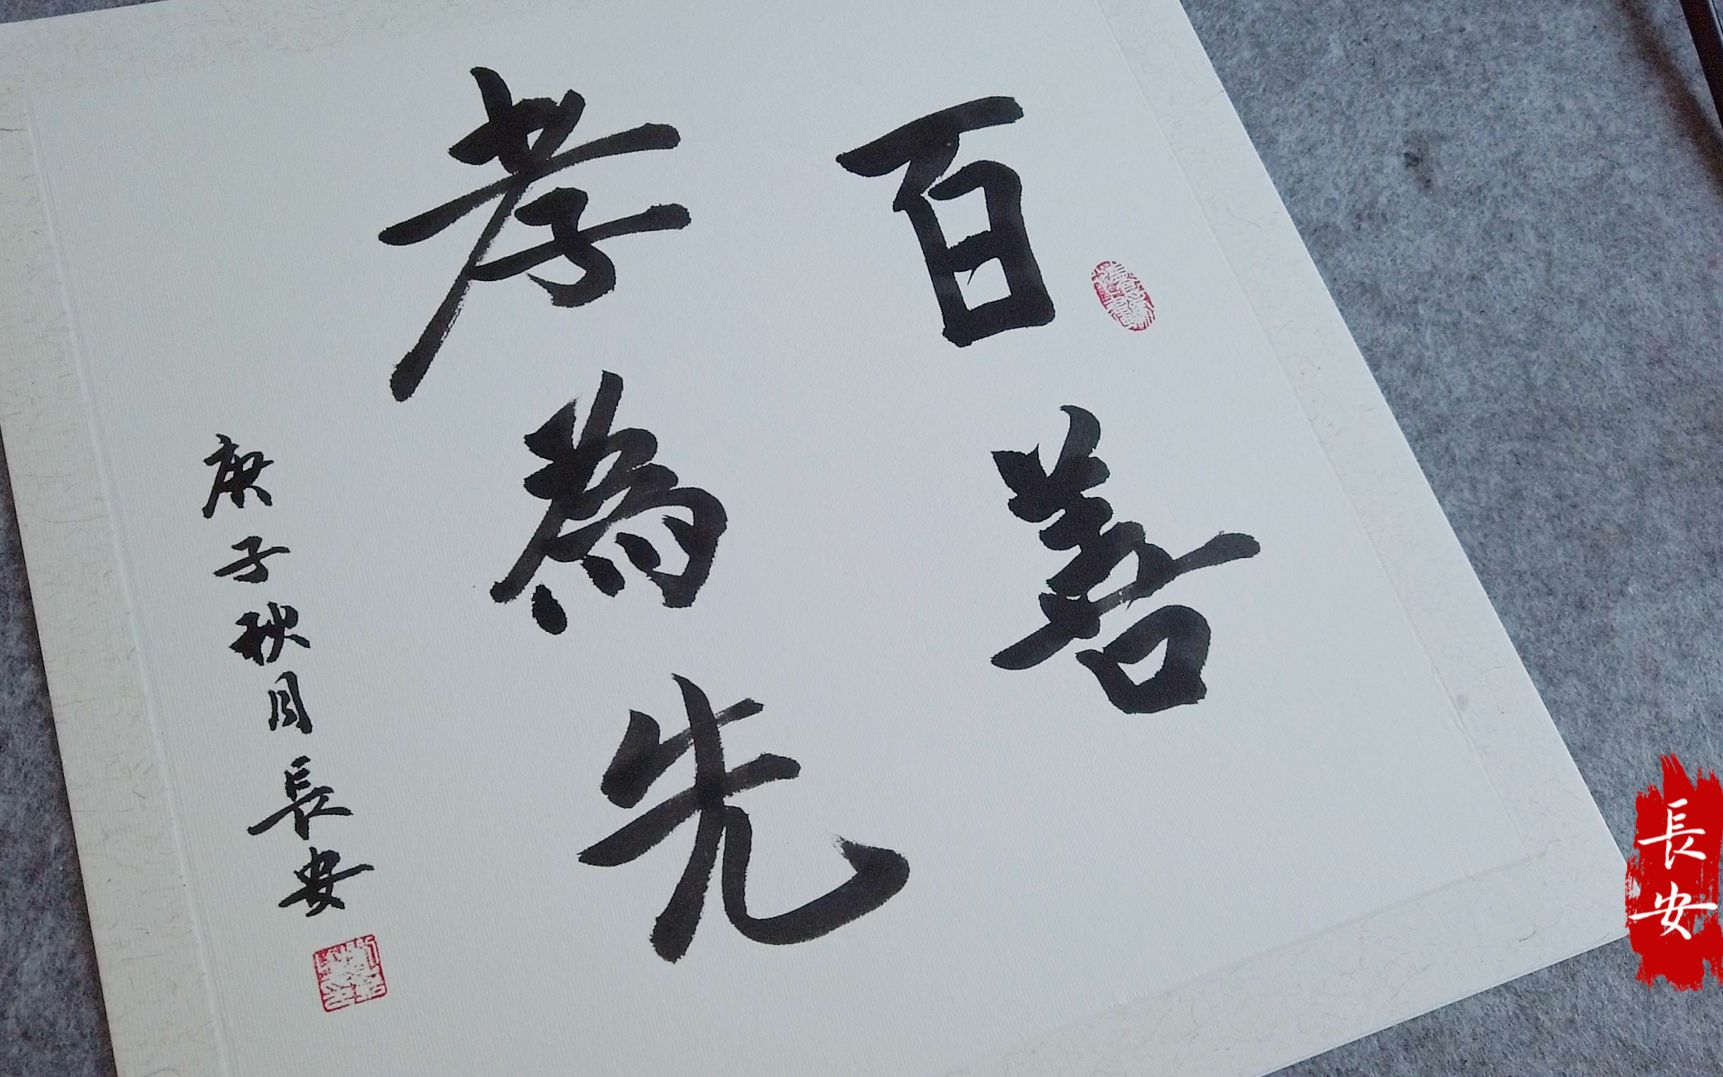 百善
孝為先
庚子秋月長安
長安